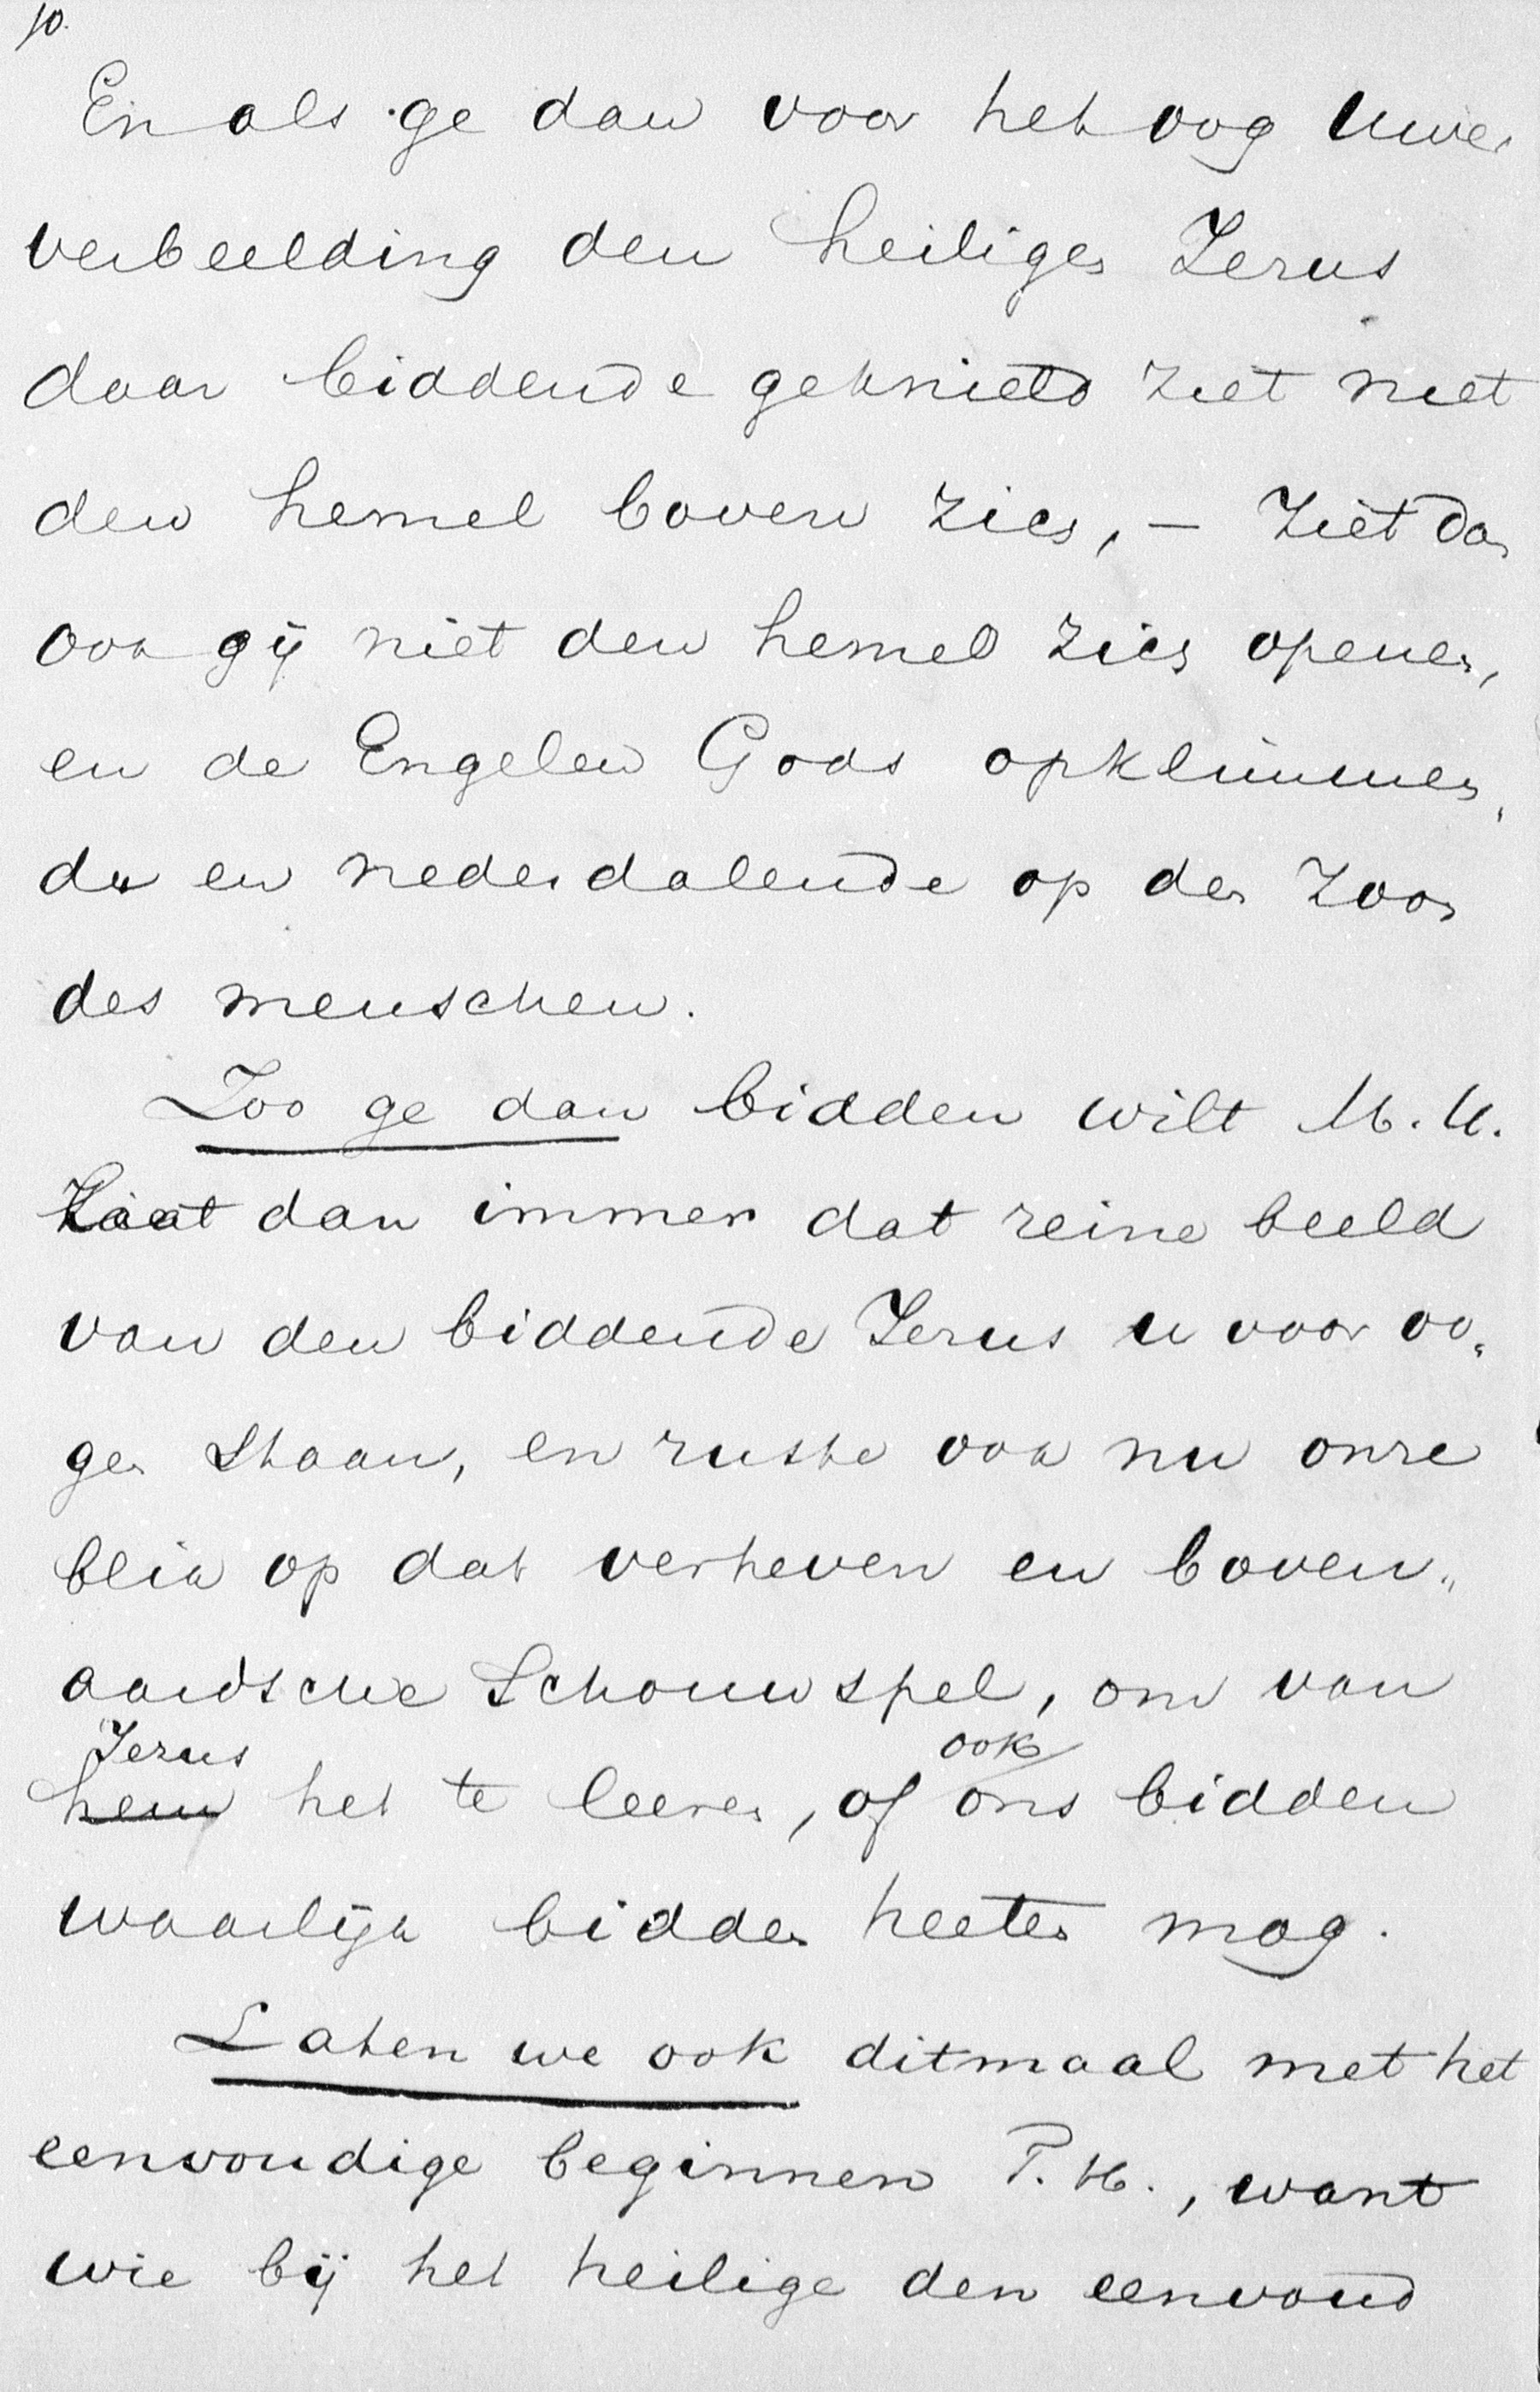 10.
En als ge dan voor het oog uwer
verbeelding den heiligen Jezus
daar biddende geknield ziet met
den hemel boven zich, – ziet dan
ook gij niet den hemel zich openen,
en de Engelen Gods opklimmen,
de en nederdalende op den Zoon
des menschen.
Zoo ge dan bidden wilt M. H.
Laat dan immer dat reine beeld
van den biddende Jezus u voor oo„
gen staan, en ruste ook nu onze
blik op dat verheven en boven„
aardsche Schouwspel, om van
Jezus ook
hem het te leeren, of ons bidden
waarlijk bidden heeten mag.
Laten we ook ditmaal met het
eenvoudige beginnen T. H., want
wie bij het heilige den eenvoud